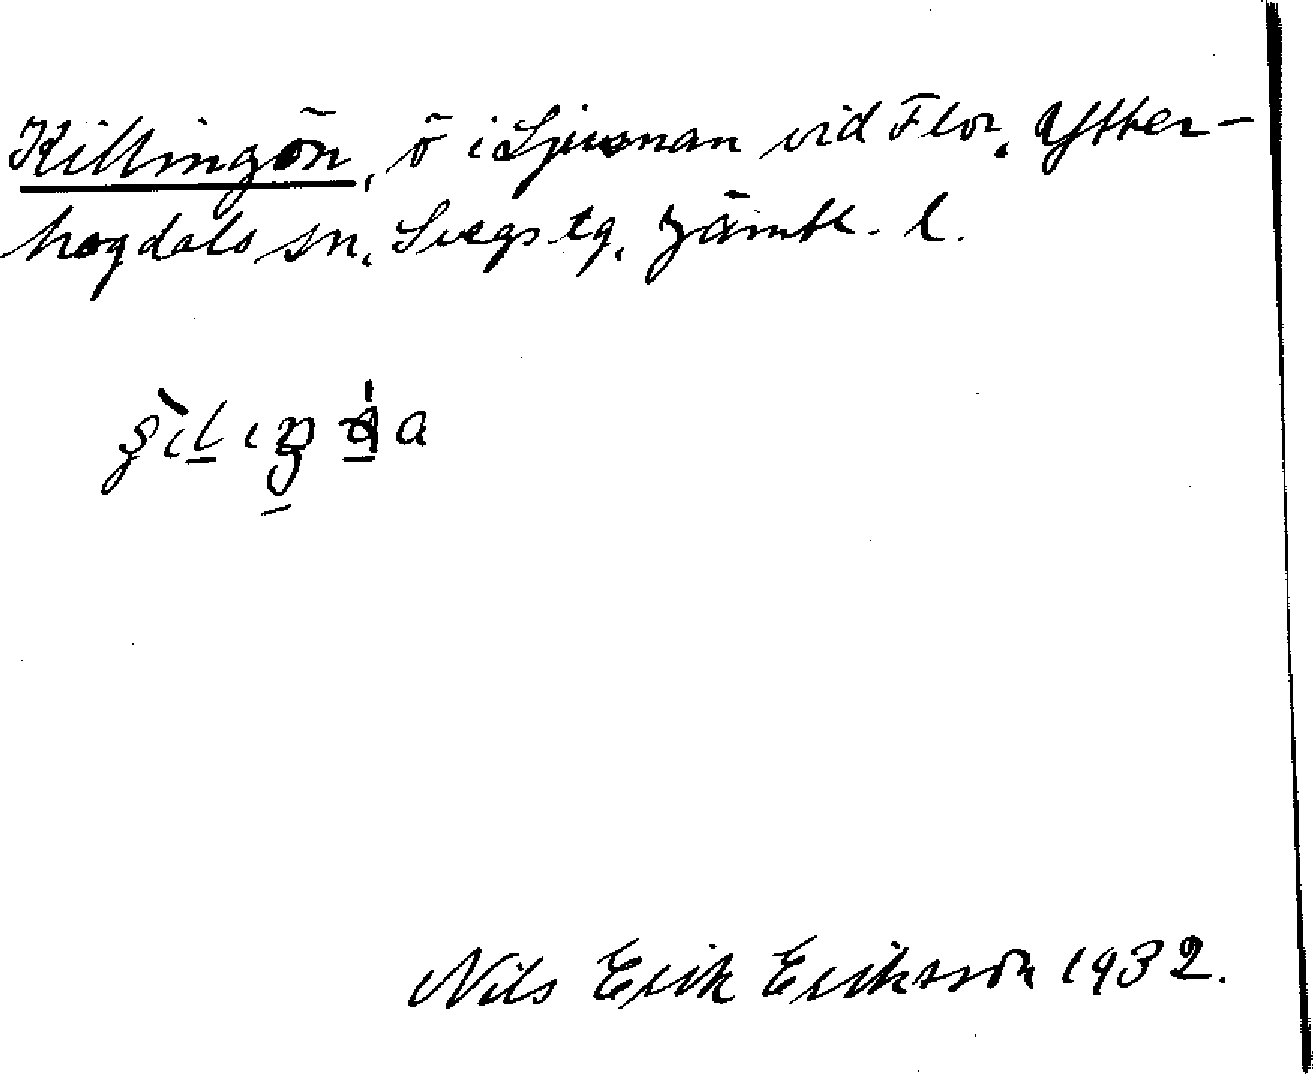 Killingön, ö i Ljusnan vid Flor, Ytter-
hogdals sn, Svegs tg, Jämtl. l.
Nils Erik Eriksson 1932.